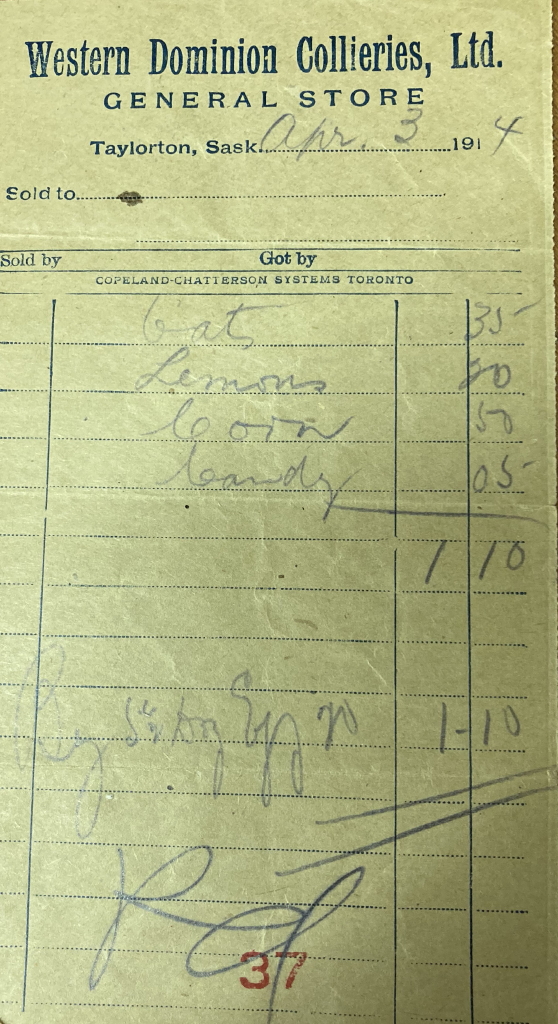 Western Dominion Collieries, Ltd.
GENERAL STORE
Taylorton, Sask. Apr. 3 1914
Sold to
Sold by Got by
COPELAND-CHATTERSON SYSTEMS TORONTO
Oats 35
Lemons 20
Corn 50
Candy 05
1 10
By 5½ Doz Eggs 20 1-10
37